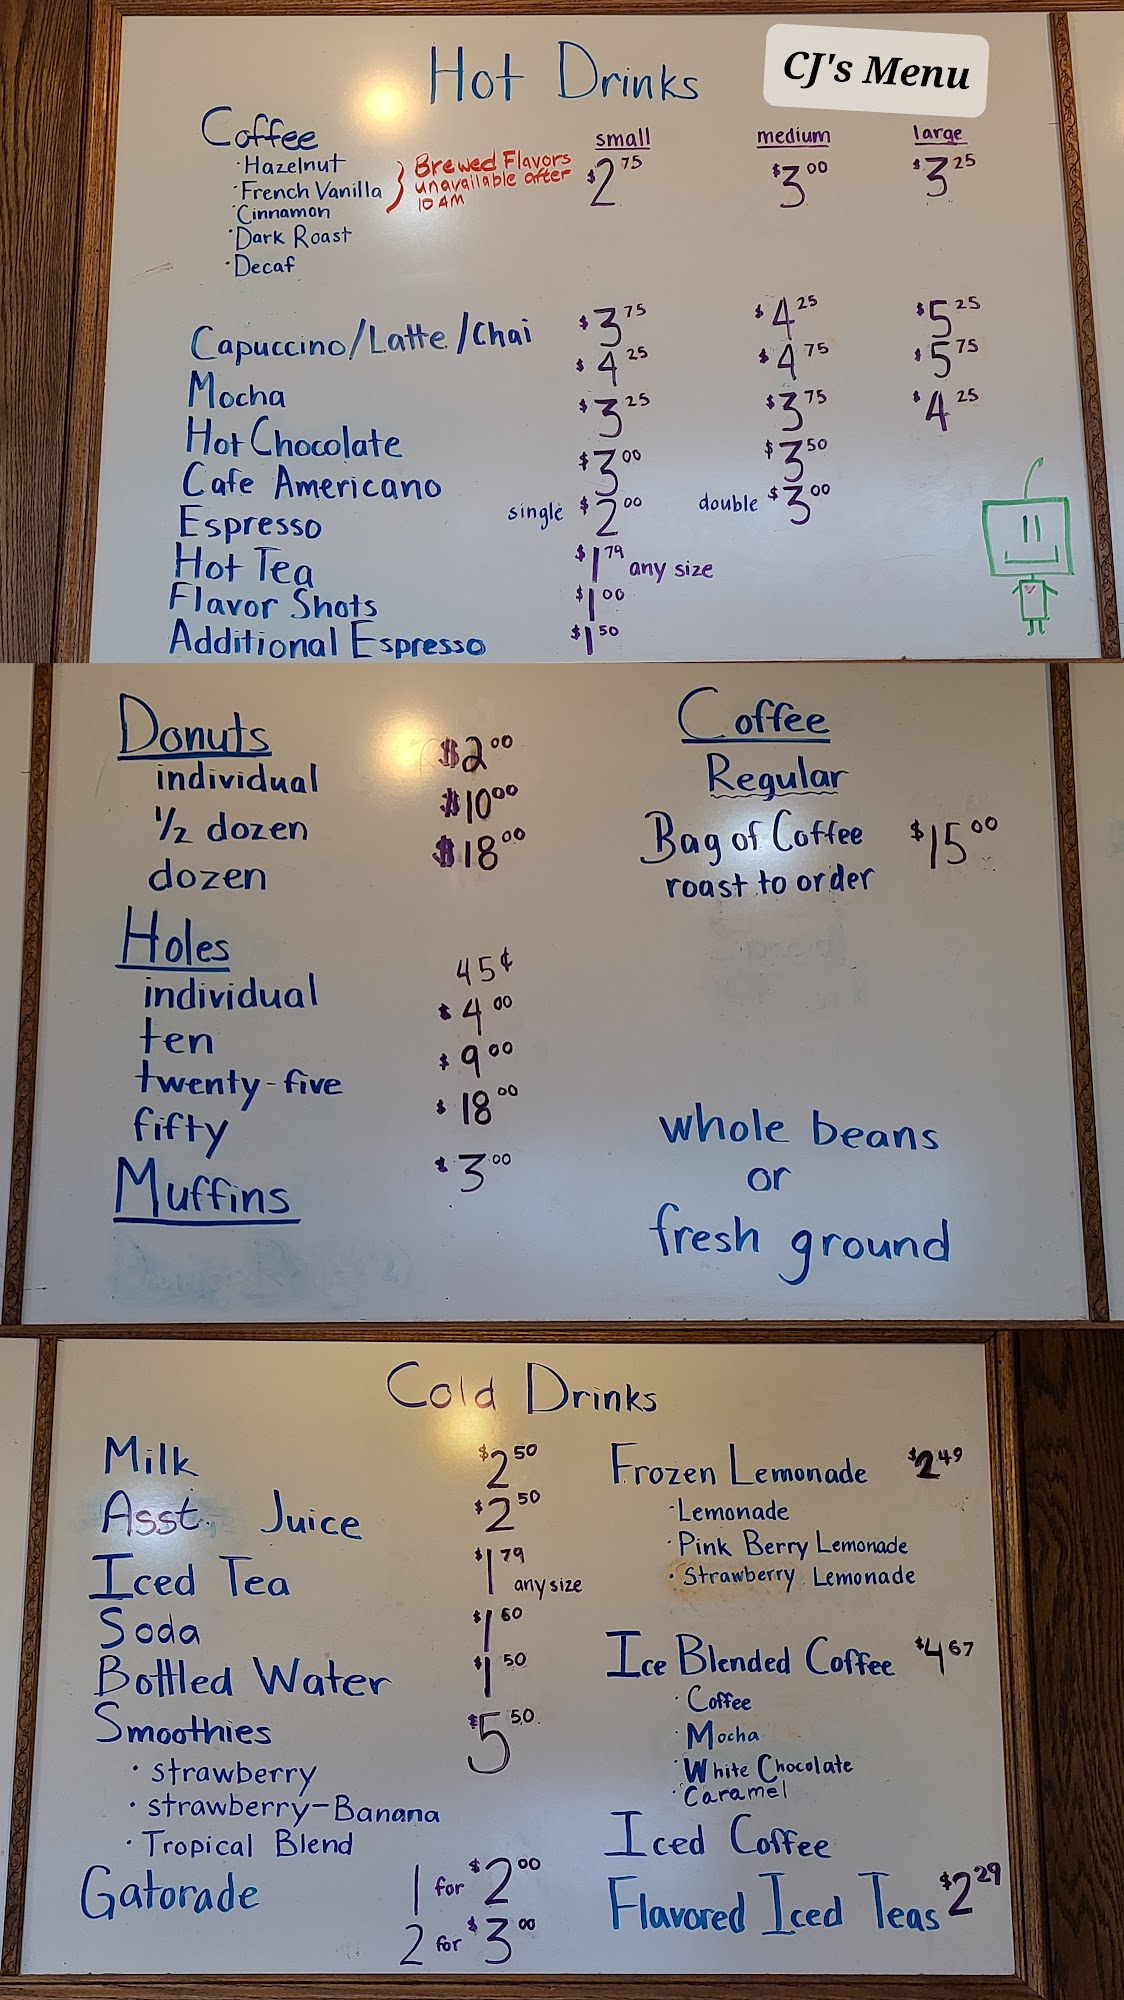 CJ's Menu
Hot Drinks
small medium large
Coffee $2.75 $3.00 $3.25
·Hazelnut
·French Vanilla
·Cinnamon
·Dark Roast
·Decaf
Brewed Flavors
unavailable after
10 AM
Capuccino/Latte/Chai $3.75 $4.25 $5.25
Mocha $4.25 $4.75 $5.75
Hot Chocolate $3.25 $3.75 $4.25
Cafe Americano $3.00 $3.50
Espresso single $2.00 double $3.00
Hot Tea $1.79 any size
Flavor Shots $1.00
Additional Espresso $1.50
Donuts
individual $2.00
1/2 dozen $10.00
dozen $18.00
Holes
individual 45¢
ten $4.00
twenty-five $9.00
fifty $18.00
Muffins $3.00
Coffee
Regular
Bag of Coffee $15.00
roast to order
whole beans
or
fresh ground
Cold Drinks
Milk $2.50
Asst. Juice $2.50
Iced Tea $1.79
any size
Soda $1.60
Bottled Water $1.50
Smoothies $5.50
· strawberry
· strawberry-Banana
· Tropical Blend
Gatorade 1 for $2.00
2 for $3.00
Frozen Lemonade $2.49
·Lemonade
·Pink Berry Lemonade
·Strawberry Lemonade
Ice Blended Coffee $4.67
·Coffee
·Mocha
·White Chocolate
·Caramel
Iced Coffee
Flavored Iced Teas $2.29